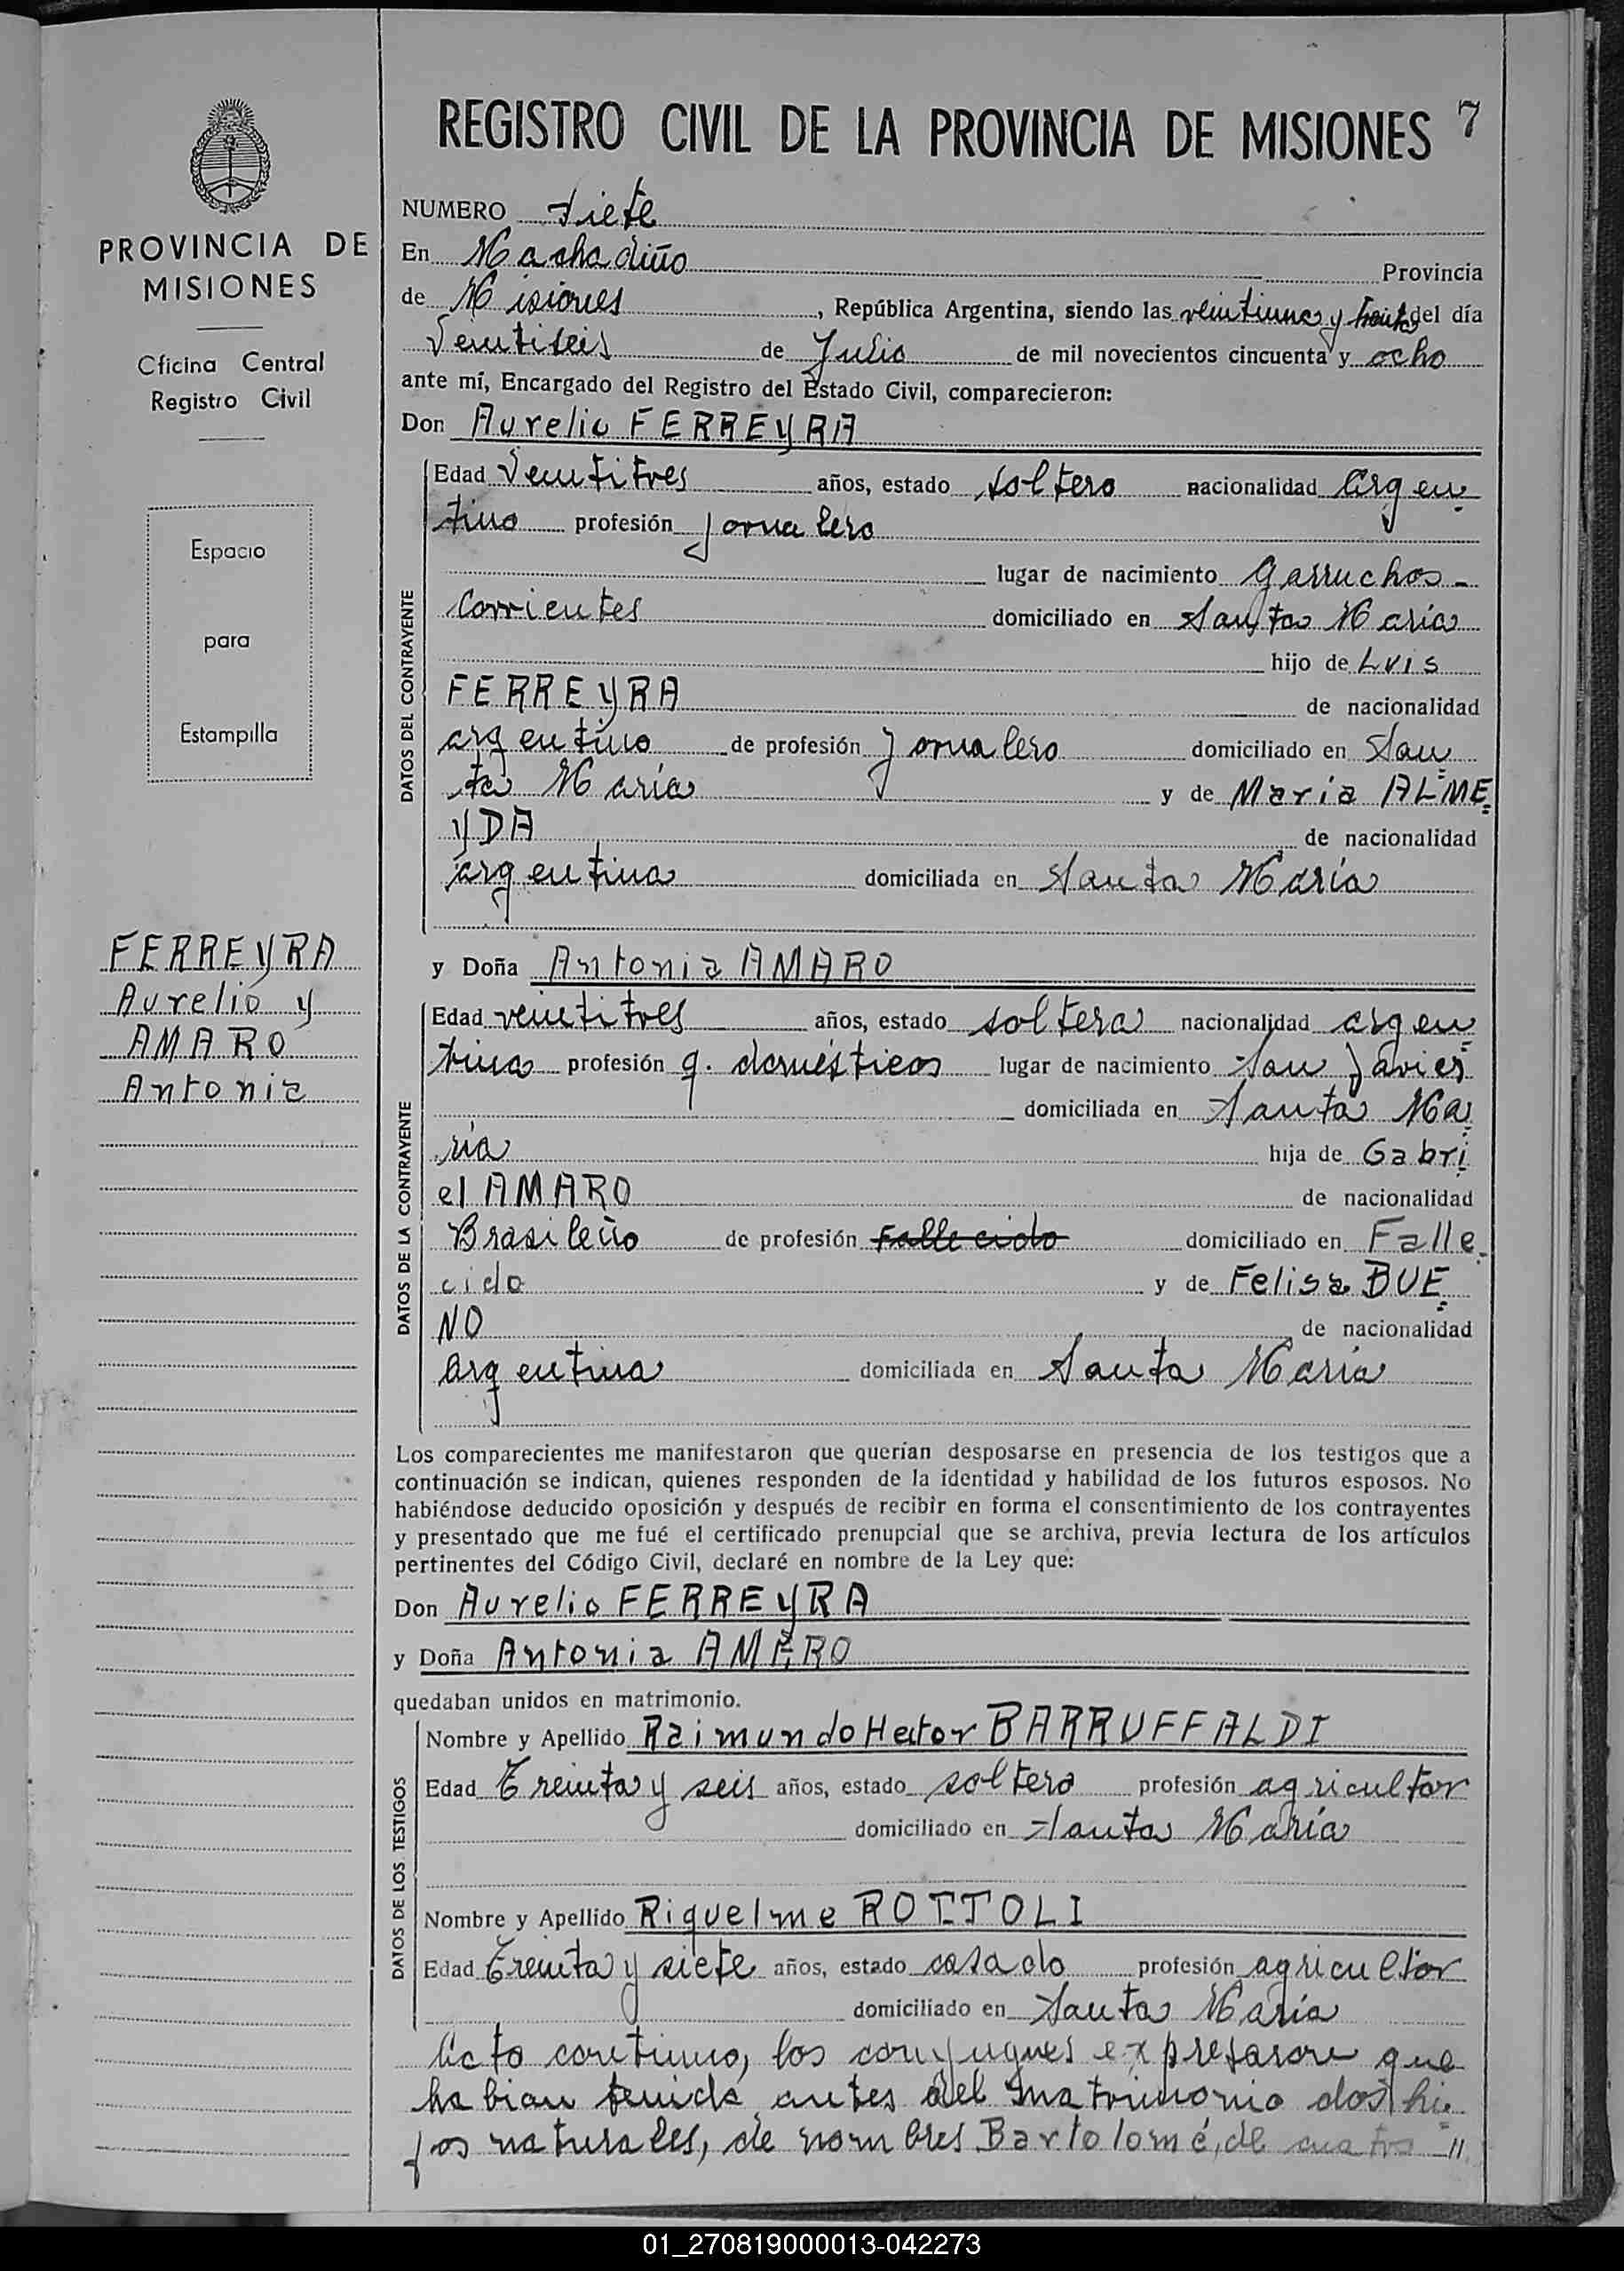 REGISTRO CIVIL DE LA PROVINCIA DE MISIONES 7
PROVINCIA DE
MISIONES
Oficina Central
Registro Civil
Espacio
para
Estampilla
FERREYRA
Aurelio y
AMARO
Antonia
NUMERO Siete
En Machadiño Provincia
de Misiones, República Argentina, siendo las veintiuna y treinta del día
Veintiseis de Julio de mil novecientos cincuenta y ocho
ante mí, Encargado del Registro del Estado Civil, comparecieron:
Don Aurelio FERREYRA
DATOS DEL CONTRAYENTE
Edad Veintitres años, estado soltero nacionalidad argen=
tino profesión Jornalero
lugar de nacimiento Garruchos -
Corrientes domiciliado en Santa María
hijo de Luis
FERREYRA de nacionalidad
argentino de profesión Jornalero domiciliado en San=
ta María y de Maria ALME=
YDA de nacionalidad
argentina domiciliada en Santa María
y Doña Antonia AMARO
DATOS DE LA CONTRAYENTE
Edad veintitres años, estado soltera nacionalidad argen=
tina profesión q. domésticos lugar de nacimiento San Javier
domiciliada en Santa Ma=
ría hija de Gabri=
el AMARO de nacionalidad
Brasileño de profesión Fallecido domiciliado en Falle=
cido y de Felisa BUE=
NO de nacionalidad
argentina domiciliada en Santa María
Los comparecientes me manifestaron que querían desposarse en presencia de los testigos que a
continuación se indican, quienes responden de la identidad y habilidad de los futuros esposos. No
habiéndose deducido oposición y después de recibir en forma el consentimiento de los contrayentes
y presentado que me fué el certificado prenupcial que se archiva, previa lectura de los artículos
pertinentes del Código Civil, declaré en nombre de la Ley que:
Don Aurelio FERREYRA
y Doña Antonia AMARO
quedaban unidos en matrimonio.
DATOS DE LOS TESTIGOS
Nombre y Apellido Raimundo Hector BARRUFFALDI
Edad Treinta y seis años, estado soltero profesión agricultor
domiciliado en Santa María
Nombre y Apellido Riquelme ROTTOLI
Edad Treinta y siete años, estado casado profesión agricultor
domiciliado en Santa María
Acto continuo, los conyugues expresaron que
habian tenido antes del matrimonio dos hi=
jos naturales, de nombres Bartolomé, de cuatro "
01_270819000013-042273